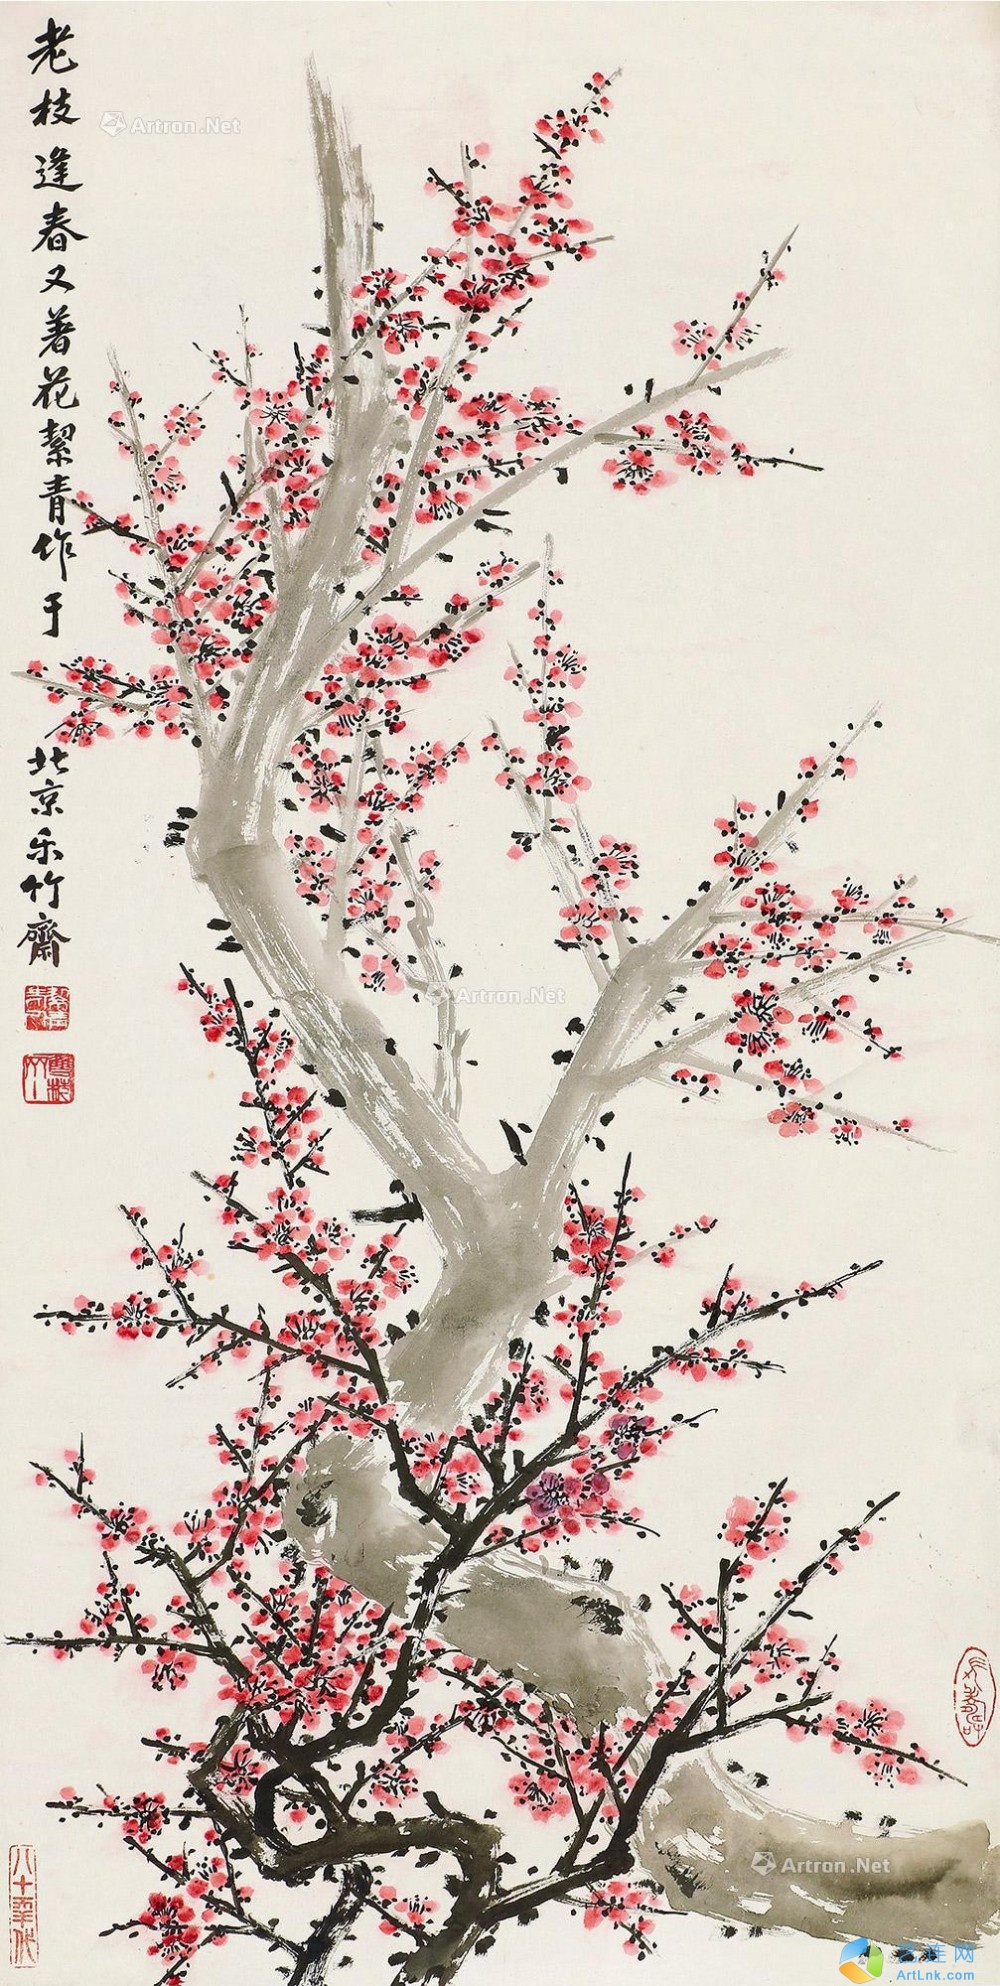 老枝逢春又著花絜青作于
北京乐竹斋
八十年代
Artron.Net
Artron.Net
Artron.Net
艺连网
ArtLnk.com